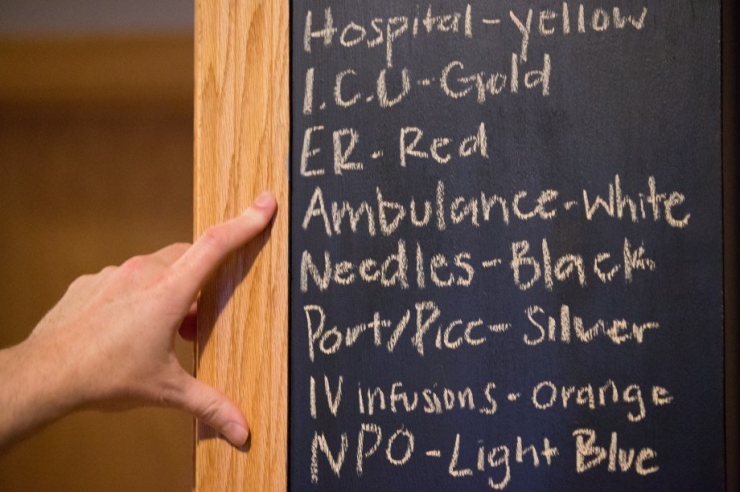 Hospital-yellow
I.C.U-Gold
ER-Red
Ambulance-White
Needles-Black
Port/Picc-Silver
IV infusions-Orange
NPO-Light Blue